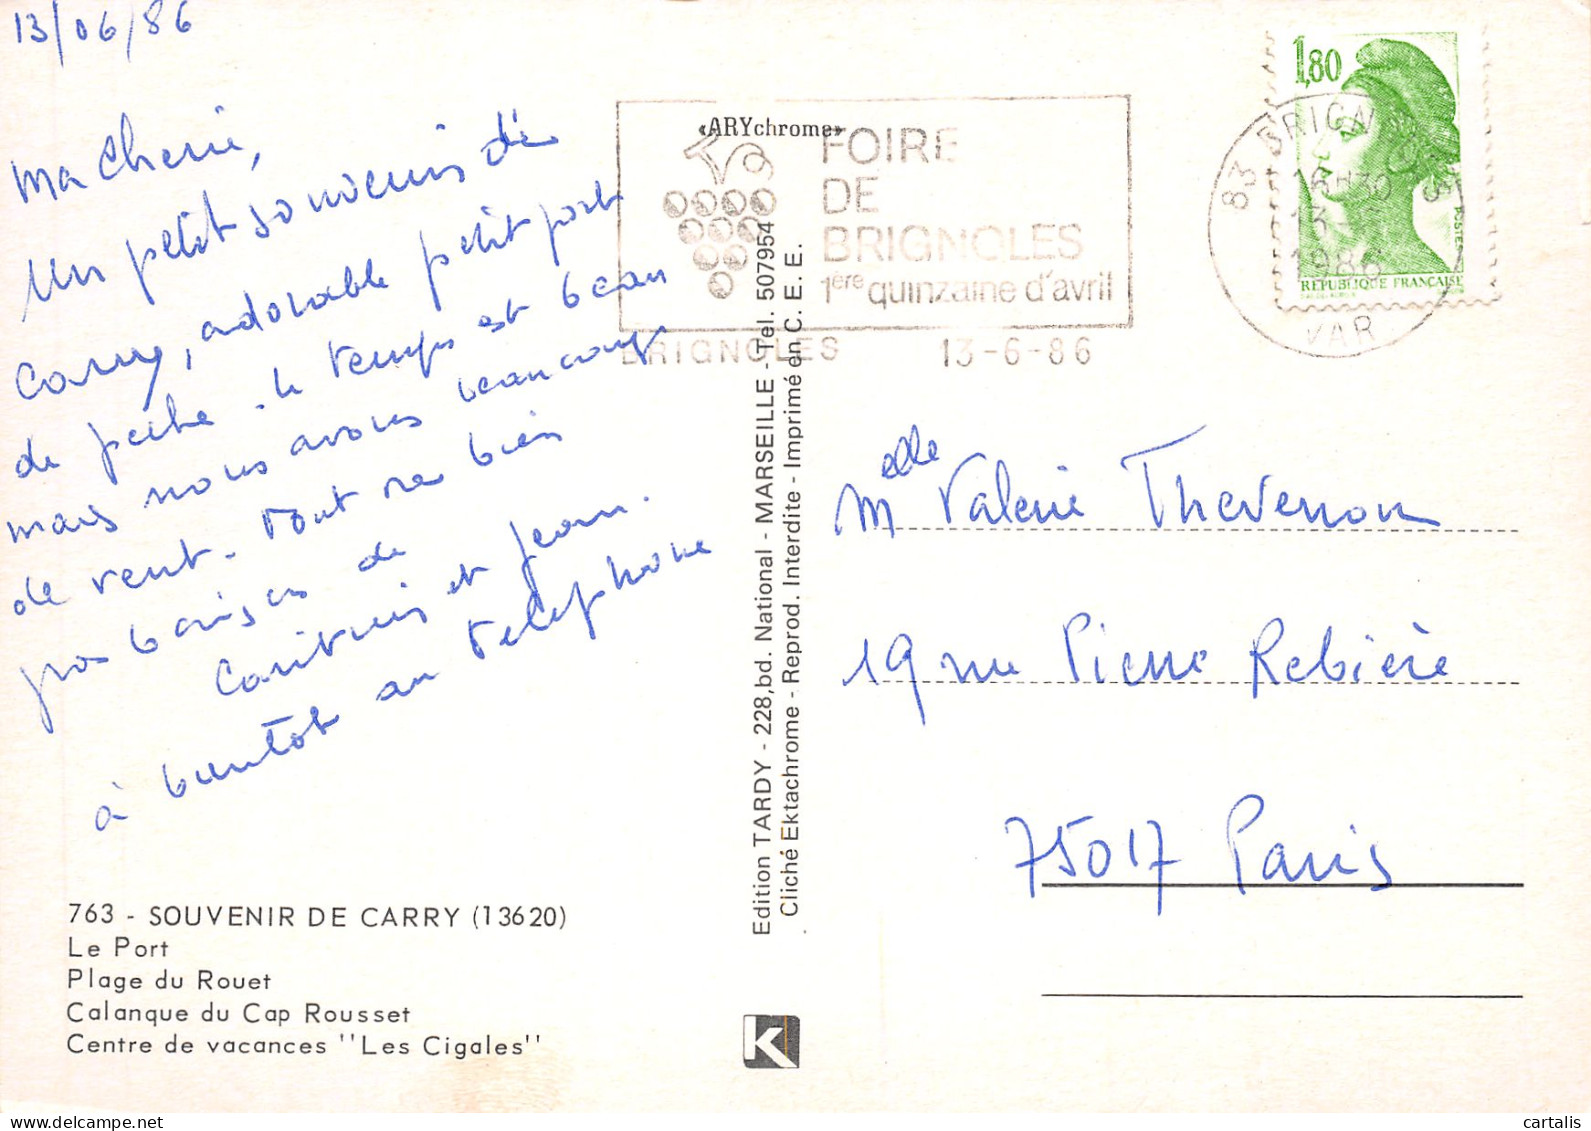 13/06/86
Ma Cherie,
Un petit souvenir de
Carry, adorable petit port
de pêche. le temps est beau
mais nous avons beaucoup
de vent. Tout va bien
gros baisers de
et Jean.
à bientôt au téléphone
763 - SOUVENIR DE CARRY (13620)
Le Port
Plage du Rouet
Calanque du Cap Rousset
Centre de vacances "Les Cigales"
Edition TARDY - 228,bd. National - MARSEILLE - Tel. 507954
Cliché Ektachrome - Reprod. Interdite - Imprimé en C. E. E.
«ARYchrome»
FOIRE
DE
BRIGNOLES
1ère quinzaine d'avril
BRIGNOLES 13-6-86
1,80
POSTES
REPUBLIQUE FRANÇAISE
83 BRIGNOLES
16H30
13
1986
VAR
Melle Valerie Thevenon
19 rue Pierre Rebière
75017 Paris
K
cartalis